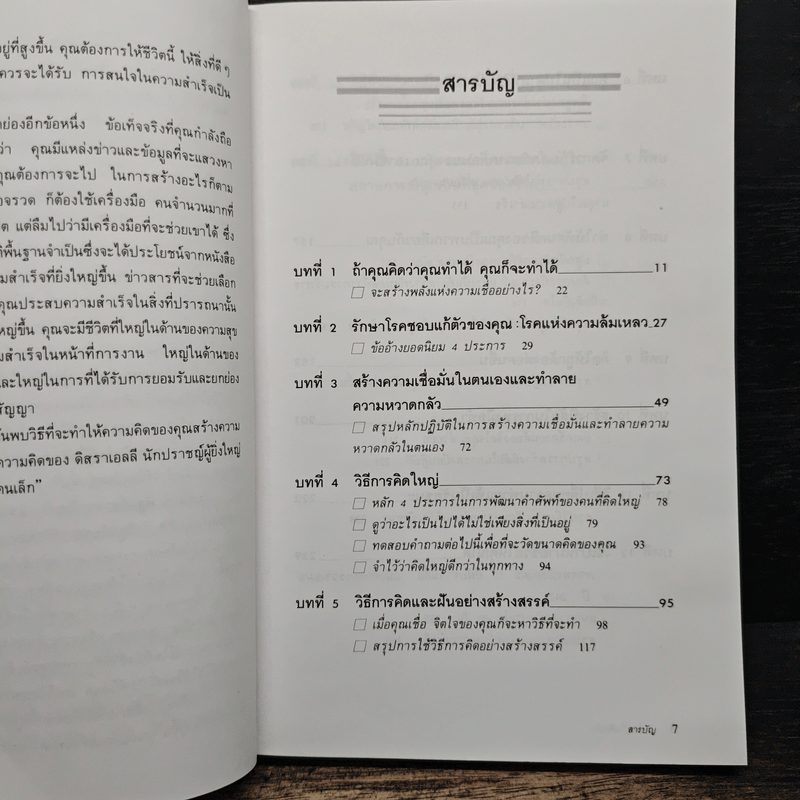 อยู่ที่สูงขึ้น คุณต้องการให้ชีวิตนี้ ให้สิ่งที่ดีๆ
ควรจะได้รับ การสนใจในความสำเร็จเป็น
ย่องอีกข้อหนึ่ง ข้อเท็จจริงที่คุณกำลังถือ
ว่า คุณมีแหล่งข่าวและข้อมูลที่จะแสวงหา
คุณต้องการจะไป ในการสร้างอะไรก็ตาม
จรวด ก็ต้องใช้เครื่องมือ คนจำนวนมากที่
ต แต่ลืมไปว่ามีเครื่องมือที่จะช่วยเขาได้ ซึ่ง
พื้นฐานจำเป็นซึ่งจะได้ประโยชน์จากหนังสือ
มสำเร็จที่ยิ่งใหญ่ขึ้น ข่าวสารที่จะช่วยเลือก
คุณประสบความสำเร็จในสิ่งที่ปรารถนานั้น
หญ่ขึ้น คุณจะมีชีวิตที่ใหญ่ในด้านของความสุข
มสำเร็จในหน้าที่การงาน ใหญ่ในด้านของ
และใหญ่ในการที่ได้รับการยอมรับและยกย่อง
สัญญา
นพบวิธีที่จะทำให้ความคิดของคุณสร้างความ
ความคิดของ ดิสราเอลลี นักปราชญ์ผู้ยิ่งใหญ่
คนเล็ก"
สารบัญ
บทที่ 1 ถ้าคุณคิดว่าคุณทำได้ คุณก็จะทำได้ 11
จะสร้างพลังแห่งความเชื่ออย่างไร? 22
บทที่ 2 รักษาโรคชอบแก้ตัวของคุณ :โรคแห่งความล้มเหลว 27
ข้ออ้างยอดนิยม 4 ประการ 29
บทที่ 3 สร้างความเชื่อมั่นในตนเองและทำลาย
ความหวาดกลัว 49
สรุปหลักปฏิบัติในการสร้างความเชื่อมั่นและทำลายความ
หวาดกลัวในตนเอง 72
บทที่ 4 วิธีการคิดใหญ่ 73
หลัก 4 ประการในการพัฒนาคำศัพท์ของคนที่คิดใหญ่ 78
ดูว่าอะไรเป็นไปได้ไม่ใช่เพียงสิ่งที่เป็นอยู่ 79
ทดสอบคำถามต่อไปนี้เพื่อที่จะวัดขนาดคิดของคุณ 93
จำไว้ว่าคิดใหญ่ดีกว่าในทุกทาง 94
บทที่ 5 วิธีการคิดและฝันอย่างสร้างสรรค์ 95
เมื่อคุณเชื่อ จิตใจของคุณก็จะหาวิธีที่จะทำ 98
สรุปการใช้วิธีการคิดอย่างสร้างสรรค์ 117
สารบัญ 7